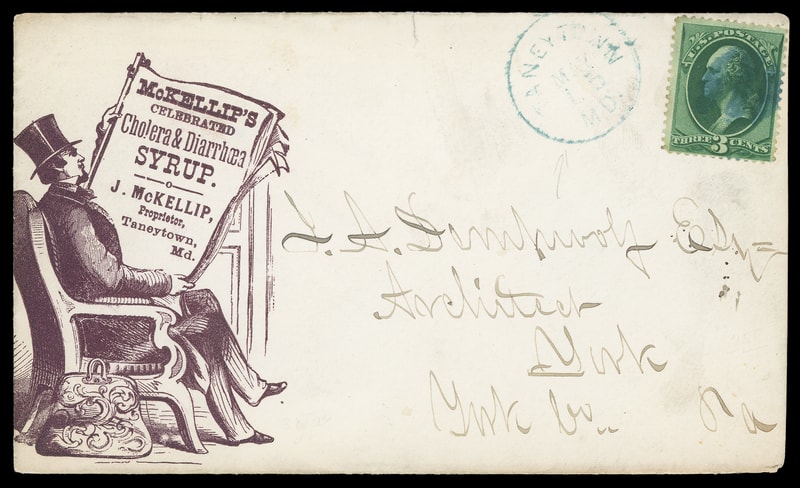 McKELLIP'S
CELEBRATED
Cholera & Diarrhœa
SYRUP.
J. McKELLIP,
Proprietor,
Taneytown,
Md.
TANEYTOWN
MD.
U.S. POSTAGE
THREE 3 CENTS
J. A. Dempwolf Esq
Architect
York
York Co. Pa